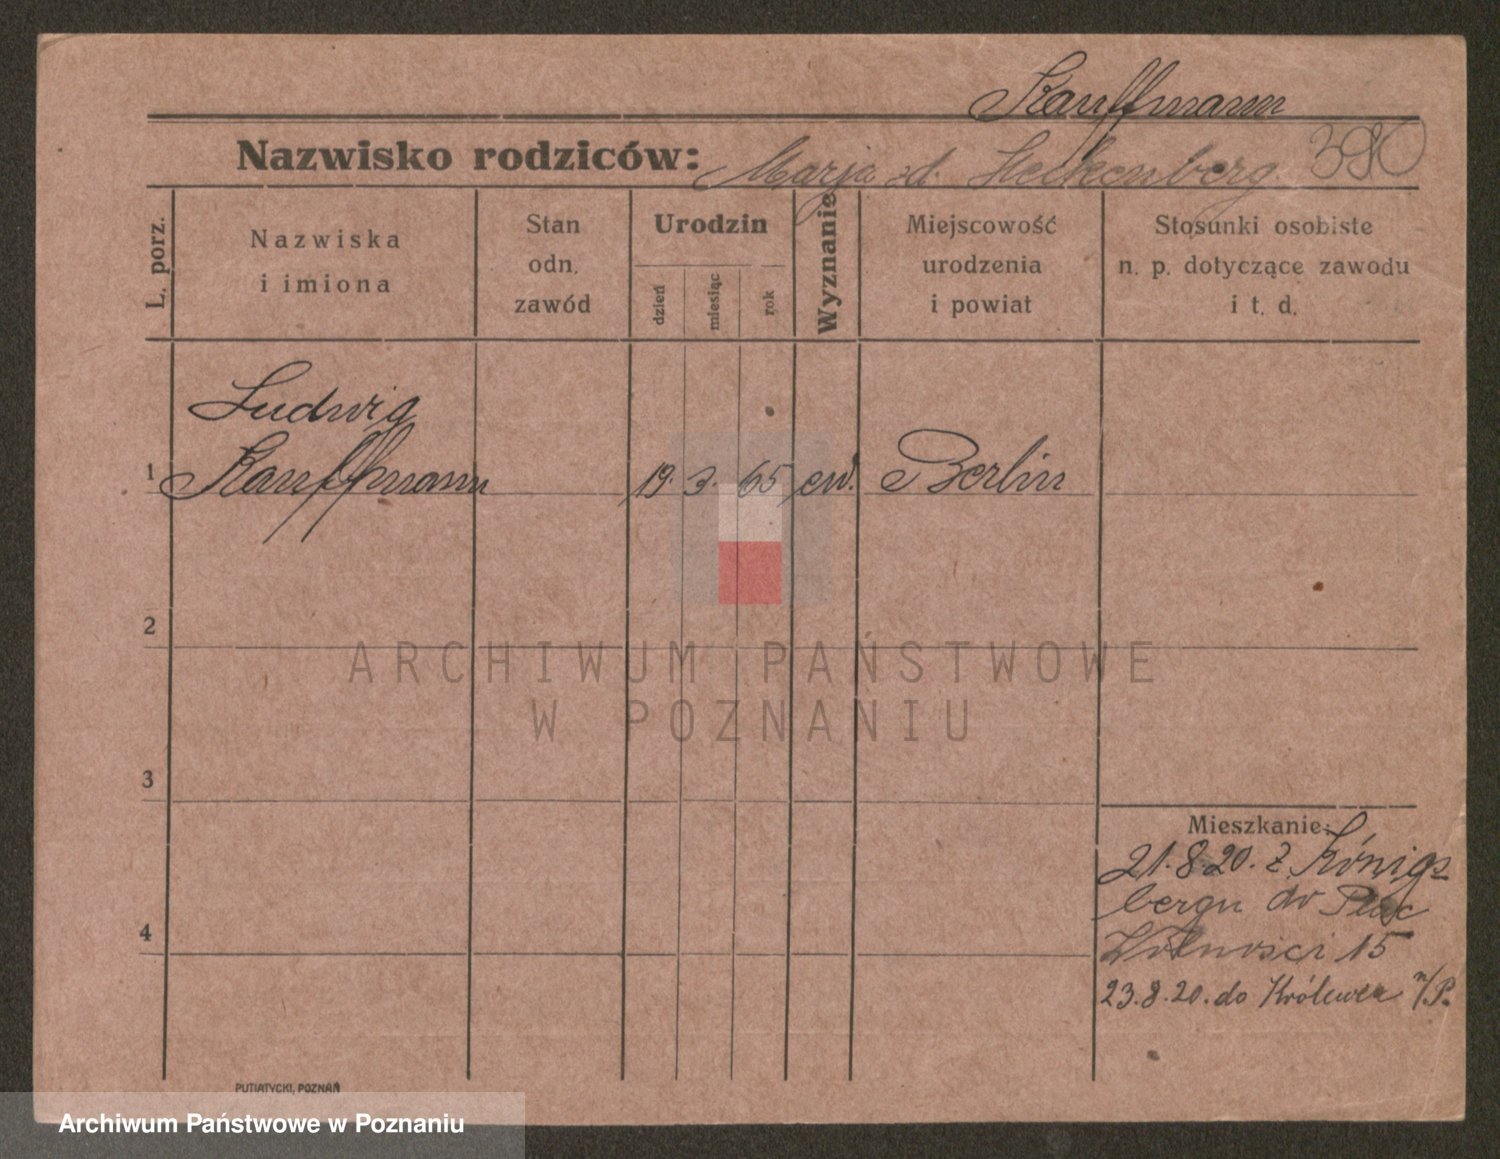 Kauffmann
Nazwisko rodziców: Marja zd. Heikenberg 390
L. porz.
Nazwiska
i imiona
Stan
odn.
zawód
Urodzin
dzień
miesiąc
rok
Wyznanie
Miejscowość
urodzenia
i powiat
Stosunki osobiste
n. p. dotyczące zawodu
i t. d.
Ludwig
1 Kauffmann 19. 3. 65 ew. Berlin
2
ARCHIWUM PAŃSTWOWE
W POZNANIU
3
Mieszkanie:
21.8.20. z Königs-
bergu do Plac
4
Wolności 15
23.8.20. do Królewca n/P.
PUTIATYCKI, POZNAŃ
Archiwum Państwowe w Poznaniu